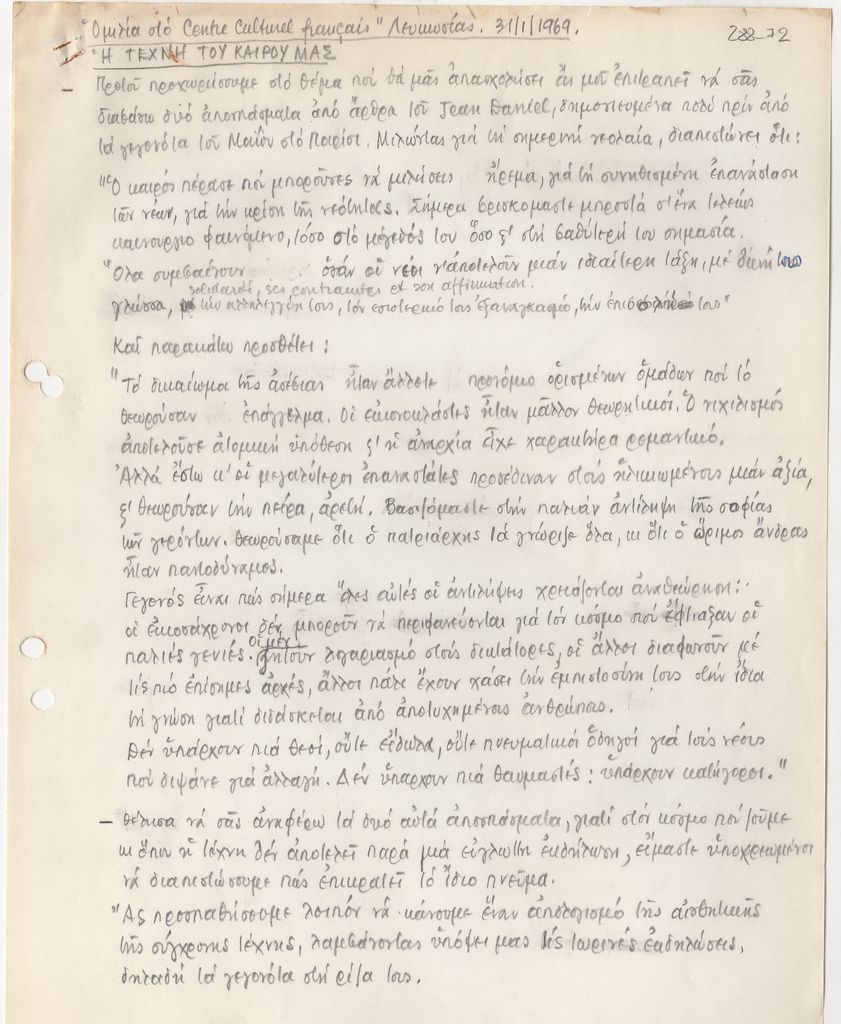 Ὁμιλία στό Centre Culturel français" Λευκωσίας. 31/1/1969.
288-72
Ἡ ΤΕΧΝΗ ΤΟΥ ΚΑΙΡΟΥ ΜΑΣ
— Προτοῦ προχωρήσουμε στό θέμα πού θά μᾶς ἀπασχολήσει ἄς μοῦ ἐπιτραπεῖ νά σᾶς
διαβάσω δυό ἀποσπάσματα ἀπό ἄρθρα τοῦ Jean Daniel, δημοσιευμένα πολύ πρίν ἀπό
τά γεγονότα τοῦ Μαΐου στό Παρίσι. Μιλώντας γιά τή σημερινή νεολαία, διαπιστώνει ὅτι:
"Ὁ καιρός πέρασε πού μποροῦσες νά μιλήσεις ἤρεμα, γιά τή συνηθισμένη ἐπανάσταση
τῶν νέων, γιά τήν κρίση τῆς νεότητος. Σήμερα βρισκόμαστε μπροστά σ' ἕνα τελείως
καινούργιο φαινόμενο, τόσο στό μέγεθός του ὅσο ξ' στή βαθύτερή του σημασία.
"Ὅλα συμβαίνουν ὡσάν οἱ νέοι ν' ἀποτελοῦν μιάν ἰδιαίτερη τάξη, μέ δική τους
solidarité, ses contraintes et son affirmation.
γλώσσα, τήν ἀλληλεγγύη τους, τόν ἐσωτερικό τους ἐξαναγκασμό, τήν ἐπιβολή τους"
Καί παρακάτω προσθέτει:
"Τό δικαίωμα τῆς ἀσέβειας ἦταν ἄλλοτε προνόμιο ὁρισμένων ὁμάδων πού τό
θεωροῦσαν ἐπάγγελμα. Οἱ εἰκονοκλάστες ἦταν μᾶλλον θεωρητικοί. Ὁ νιχιλισμός
ἀποτελοῦσε ἀτομική ὑπόθεση ξ' ἡ ἀναρχία εἶχε χαρακτήρα ρομαντικό.
Ἀλλά ἔστω κ' οἱ μεγαλύτεροι ἐπαναστάτες προσέδιναν στούς ἡλικιωμένους μιάν ἀξία,
ξ' θεωροῦσαν τήν πείρα, ἀρετή. Βασιζόμαστε στήν παλιάν ἀντίληψη τῆς σοφίας
τῶν γερόντων. Θεωρούσαμε ὅτι ὁ πατριάρχης τά γνώριζε ὅλα, κι ὅτι ὁ ὥριμος ἄνδρας
ἦταν παντοδύναμος.
Γεγονός εἶναι πώς σήμερα ὅλες αὐτές οἱ ἀντιλήψεις χρειάζονται ἀναθεώρηση:
οἱ εἰκοσάχρονοι δέν μποροῦν νά περηφανεύονται γιά τόν κόσμο πού ἔφτιαξαν οἱ
παλιές γενιές. Οἱ μέν ζητοῦν λογαριασμό στούς δικτάτορες, οἱ ἄλλοι διαφωνοῦν μέ
τίς πιό ἐπίσημες ἀρχές, ἄλλοι πάλι ἔχουν χάσει τήν ἐμπιστοσύνη τους στήν ἴδια
τή γνώση γιατί διδάσκεται ἀπό ἀποτυχημένους ἀνθρώπους.
Δέν ὑπάρχουν πιά θεοί, οὔτε εἴδωλα, οὔτε πνευματικοί ὁδηγοί γιά τούς νέους
πού διψᾶνε γιά ἀλλαγή. Δέν ὑπάρχουν πιά θαυμαστές: ὑπάρχουν κατήγοροι."
— Θέλησα νά σᾶς ἀναφέρω τά δυό αὐτά ἀποσπάσματα, γιατί στόν κόσμο πού ζοῦμε
κι ὅπου ἡ τέχνη δέν ἀποτελεῖ παρά μιά εὔγλωττη ἐκδήλωση, εἴμαστε ὑποχρεωμένοι
νά διαπιστώσουμε πώς ἐπικρατεῖ τό ἴδιο πνεῦμα.
"Ἄς προσπαθήσουμε λοιπόν νά κάνουμε ἕναν ἀπολογισμό τῆς αἰσθητικῆς
τῆς σύγχρονης τέχνης, λαμβάνοντας ὑπόψει μας τίς τωρινές ἐκδηλώσεις,
δηλαδή τά γεγονότα στή ρίζα τους.